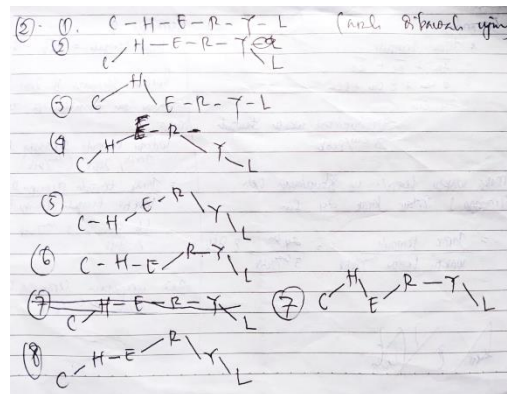 ②. ①. C - H - E - R - Y - L
② C H - E - R - Y L
③ C H E - R - Y - L
④ C H E - R - Y L
⑤ C - H E - R Y L
⑥ C - H - E R - Y L
⑦ C H - E - R - Y L ⑦ C H E R - Y L
⑧ C H - E R Y L